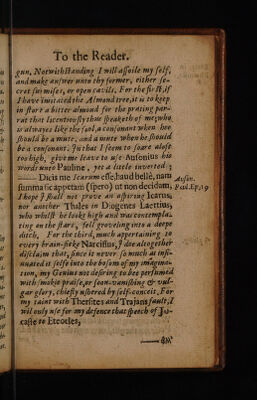 To the Reader.
gun, Notwithstanding I will assoile my self,
and make answer unto thy former, either se-
cret surmises, or open cavils. For the first, if
I have imitated the Almond tree, it is to keep
in store a bitter almond for the prating par-
rat that licentiously thus speaketh of me; who
is alwayes like the fool, a consonant when hee
should be a mute, and a mute when he should
be a consonant. In that I seem to soare alofe
too high, give me leave to use Ausonius his
words unto Pauline, yet a little inverted;
Dicis me Icarum esse, haud bellè, nam
summa sic appetam (spero) ut non decidam,
I hope I shall not prove an aspiring Icarus,
nor another Thales in Diogenes Laertius,
who whilst he lookt high and was contempla-
ting on the stars, fell groveling into a deepe
ditch, For the third, much appertaining to
every brain-sicke Narcissus, I doe altogether
disclaim that, since it never so much as insi-
nuated it selfe into the bosom of my imagina-
tion, my Genius not desiring to bee perfumed
with smokie praise, or soon-vanishing & vul-
gar glory, chiefly ushered by self-conceit. For
my taint with Thersites and Trajans fault, I
wil only use for my defence that speech of Jo-
caste to Eteocles,
Auson.
Paul. Ep. 19